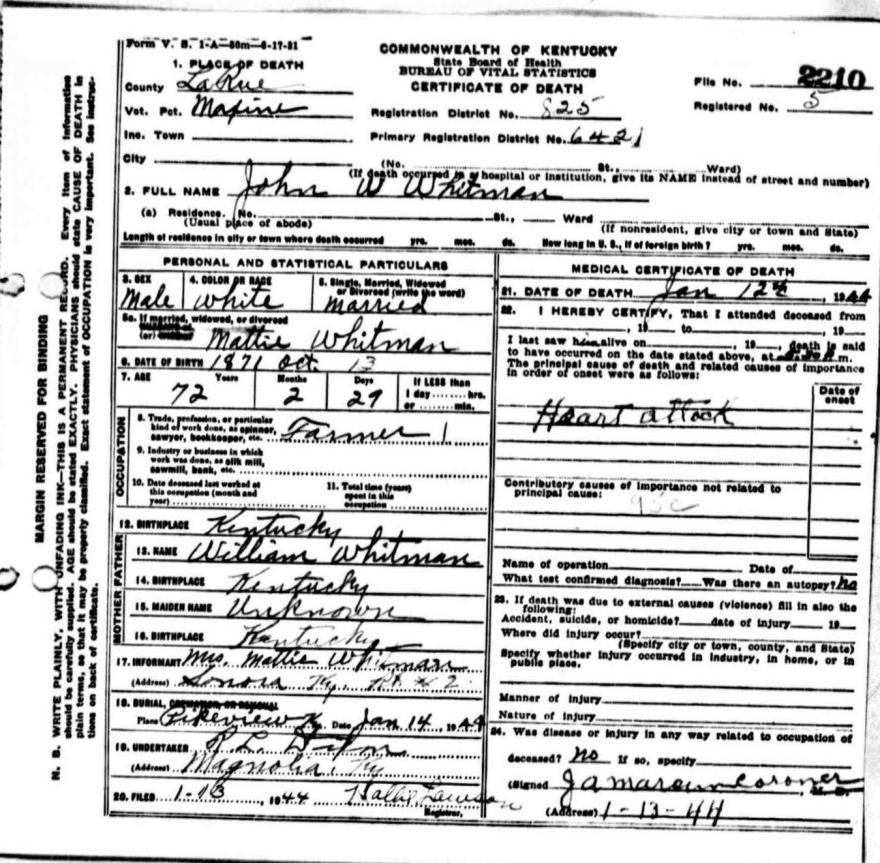 Form V. S. 1-A—50m—6-17-31
COMMONWEALTH OF KENTUCKY
State Board of Health
BUREAU OF VITAL STATISTICS
CERTIFICATE OF DEATH
File No. 2210
Registered No. 5
1. PLACE OF DEATH
County LaRue
Vot. Pct. Maxine
Inc. Town
City
Registration District No. 825
Primary Registration District No. 6421
(No. St., Ward)
(If death occurred in a hospital or institution, give its NAME instead of street and number)
2. FULL NAME John W Whitman
(a) Residence. No. St., Ward
(Usual place of abode) (If nonresident, give city or town and State)
Length of residence in city or town where death occurred yrs. mos. ds. How long in U. S., if of foreign birth? yrs. mos. ds.
PERSONAL AND STATISTICAL PARTICULARS
3. SEX 4. COLOR OR RACE 5. Single, Married, Widowed
or Divorced (write the word)
Male White Married
5a. If married, widowed, or divorced
(or)
Mattie Whitman
6. DATE OF BIRTH 1871 Oct. 13
7. AGE Years Months Days If LESS than
1 day hrs.
or min.
72 2 29
OCCUPATION
8. Trade, profession, or particular
kind of work done, as spinner,
sawyer, bookkeeper, etc. Farmer
9. Industry or business in which
work was done, as silk mill,
sawmill, bank, etc.
10. Date deceased last worked at
this occupation (month and
year)
11. Total time (years)
spent in this
occupation
12. BIRTHPLACE Kentucky
FATHER
13. NAME William Whitman
14. BIRTHPLACE Kentucky
MOTHER
15. MAIDEN NAME Unknown
16. BIRTHPLACE Kentucky
17. INFORMANT Mrs. Mattie Whitman
(Address) Sonora Ky. Rt # 2
18. BURIAL, CREMATION, OR REMOVAL
Place Pikeview Ky. Date Jan 14, 1944
19. UNDERTAKER
(Address) Magnolia, Ky
20. FILED 1-13, 1944 Hallie Lawson
Registrar.
MEDICAL CERTIFICATE OF DEATH
21. DATE OF DEATH Jan 12th, 1944
22. I HEREBY CERTIFY, That I attended deceased from
, 19 to , 19
I last saw him alive on , 19 , death is said
to have occurred on the date stated above, at m.
The principal cause of death and related causes of importance
in order of onset were as follows:
Date of
onset
Heart attack
Contributory causes of importance not related to
principal cause:
Name of operation Date of
What test confirmed diagnosis? Was there an autopsy? No
23. If death was due to external causes (violence) fill in also the
following:
Accident, suicide, or homicide? date of injury 19
Where did injury occur?
(Specify city or town, county, and State)
Specify whether injury occurred in industry, in home, or in
public place.
Manner of injury
Nature of injury
24. Was disease or injury in any way related to occupation of
deceased? No If so, specify
(Signed Coroner, M. D.
(Address) 1-13-44
MARGIN RESERVED FOR BINDING
N. B. WRITE PLAINLY, WITH UNFADING INK—THIS IS A PERMANENT RECORD. Every item of information
should be carefully supplied. AGE should be stated EXACTLY. PHYSICIANS should state CAUSE OF DEATH in
plain terms, so that it may be properly classified. Exact statement of OCCUPATION is very important. See instruc-
tions on back of certificate.